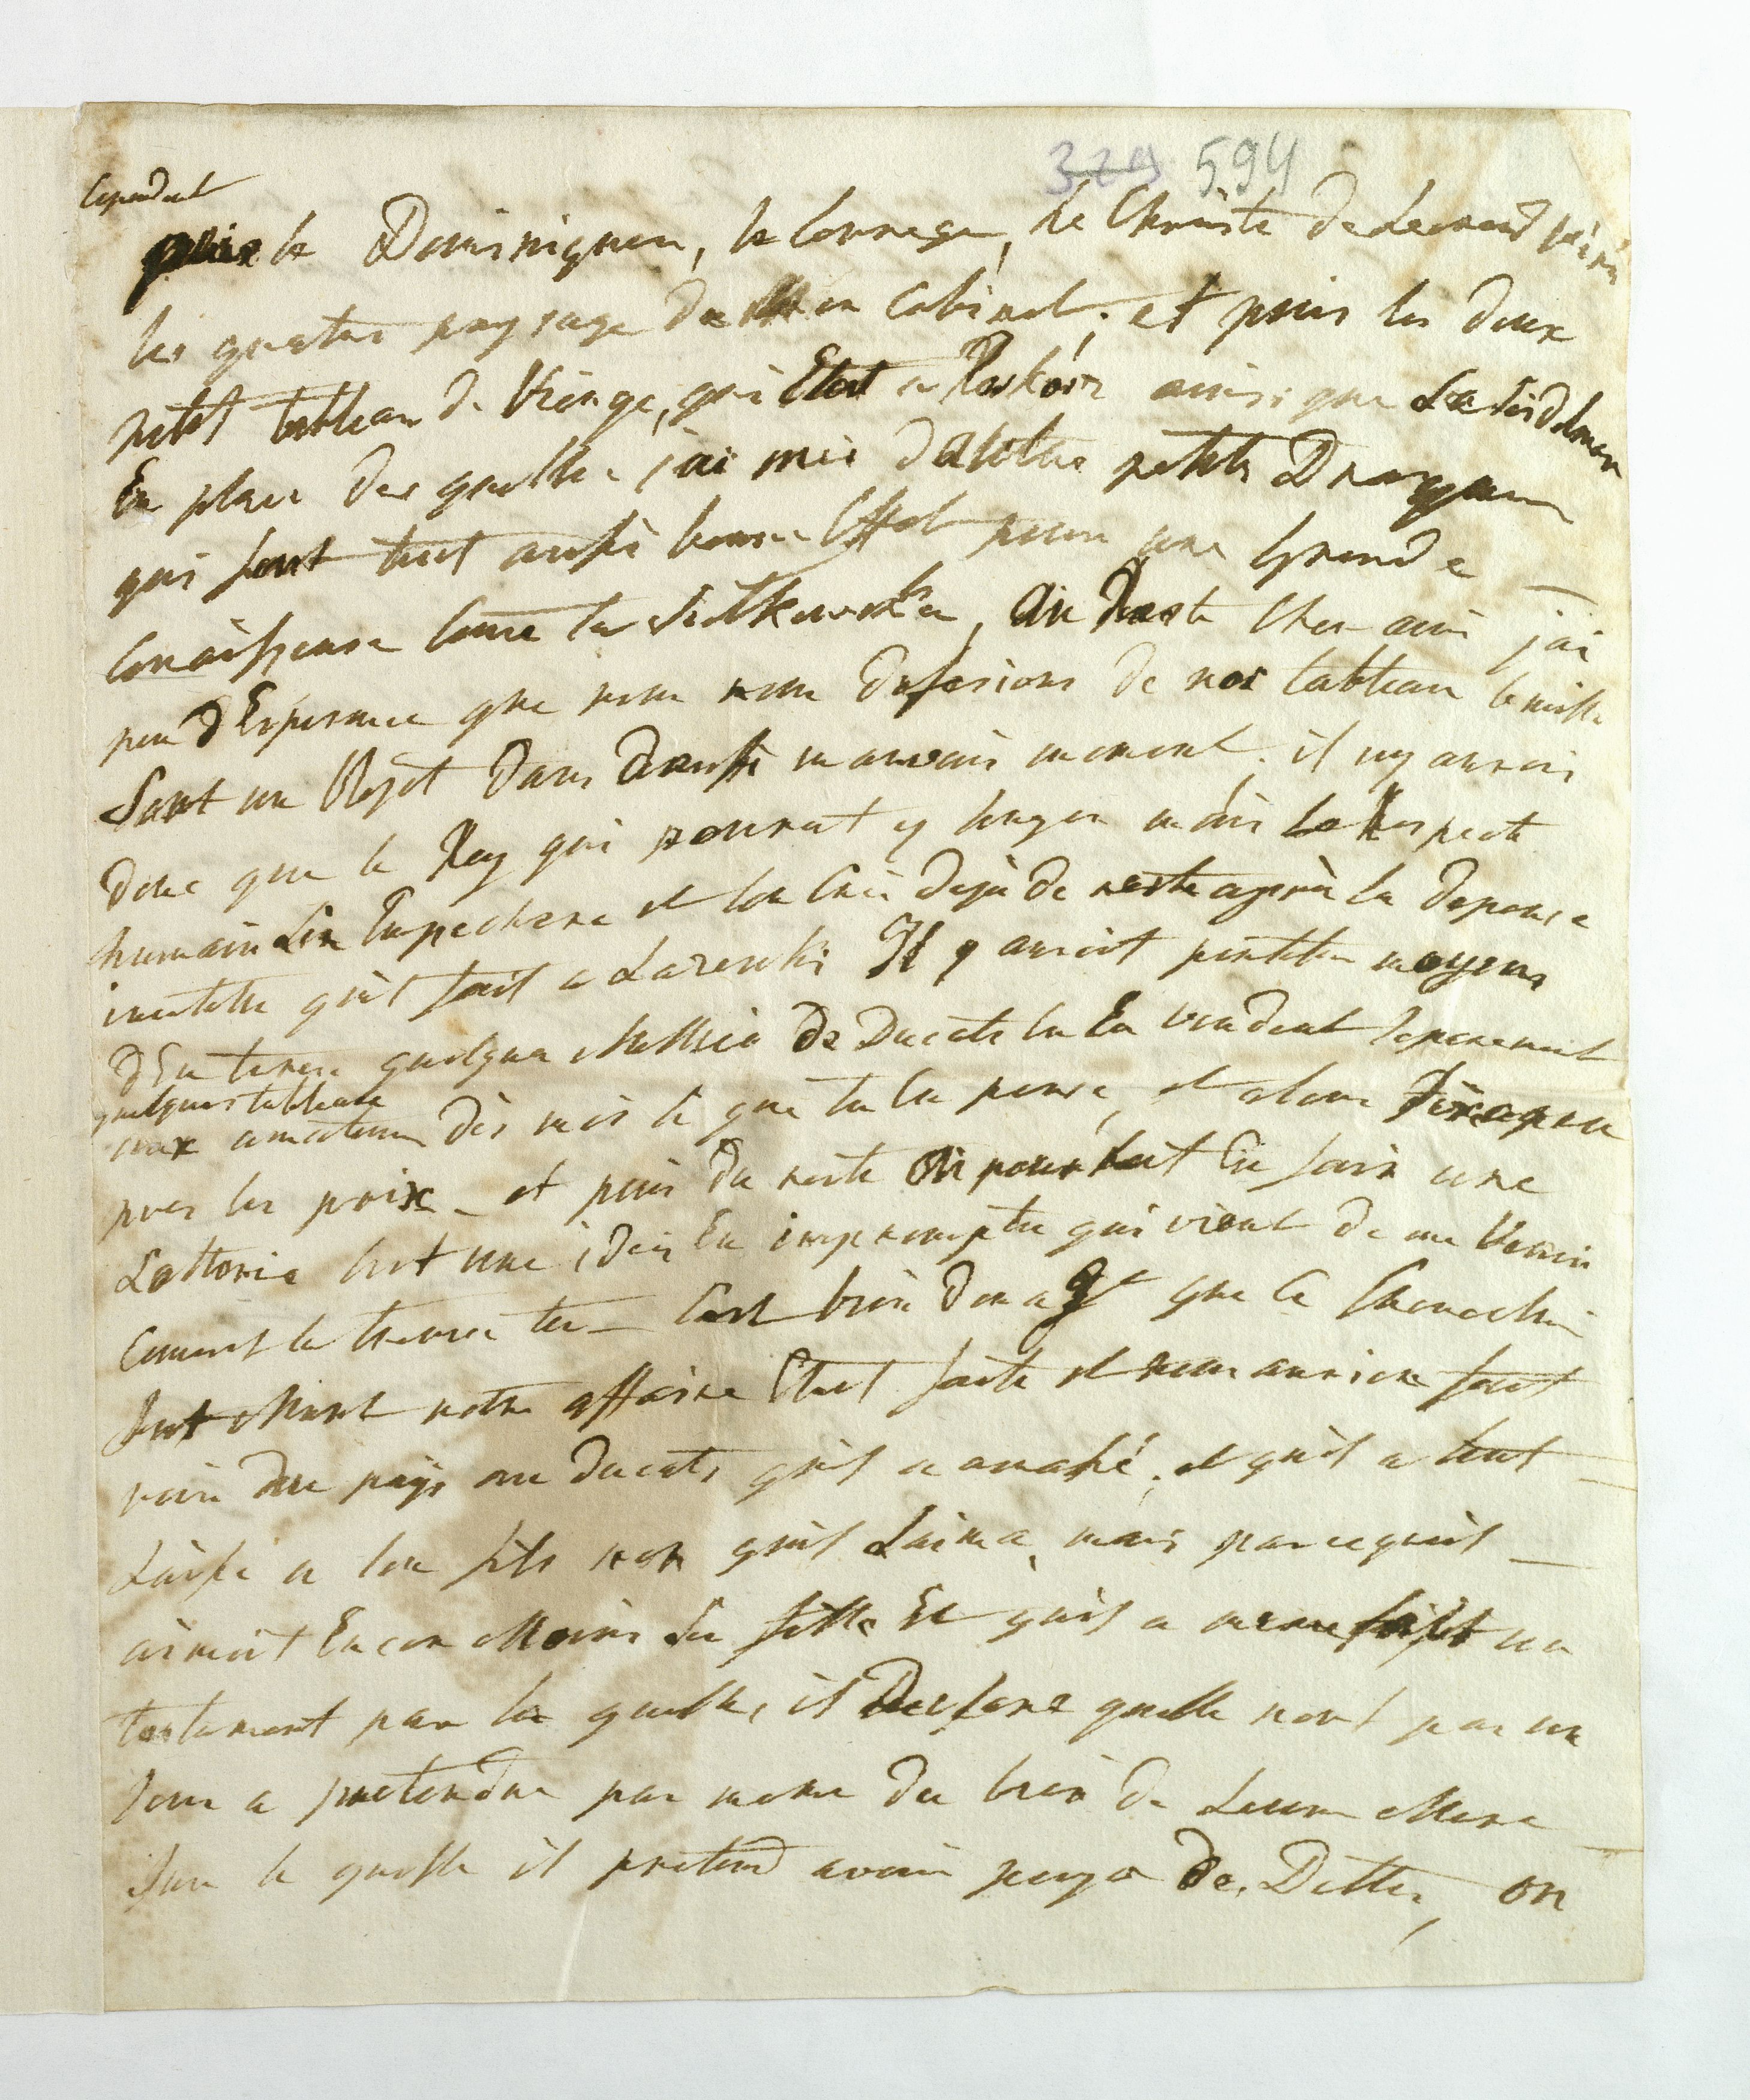 329 594
Cependant
puis le Dominiquen, le Correge, le Christe de Leonard Vin
les quatre paysage de mon Cabinet, et puis les deux
petit tableau de Vierge, qui Etoit a Roskosz ainsi que La
En place des quelle j'ai mis dautres petits Drogeun
qui font tout aussi bonne Effet pour une Grande
Conoissense come la Sielkowska, au Reste Cher ami j'ai
peu d'Esperance que nous nous defesions de nos tableau
Sont un Objet dans d'aussi mauvais moment, il ny aurois
donc que le Roy qui pourrat y songer mais le Respecte
humain Len Empechera et lon Crie deja de reste après la depense
inutille quil fait a Lazenki Il y auroit peutetre moyens
d'En tirer quelque Millié de Ducats en En vendent separement
quelques tableaux
aux amateur dis moi ce que tu En pense, et alors
les prix - et puis du reste On pourroit En faire une
Lotterie c'est une idée En impromptu qui vient de me Venir
Coment la trouve tu - C'est bien domage que le
Soit Mort notre affaire Etoit faite et nous aurions fait
voir du pays au ducats quil a amassé, et quil a tout -
Laissé a son fils non quil Laima, mais parcequil -
aimoit Encor Moins sa fille Et quil a meme fait un
testament par la quelle, il Declare quelle n'ont pas un
sous a pretendre pas meme du bien de Leur Mere -
Sur le quelle il pretend avoir payé de Dettes, on